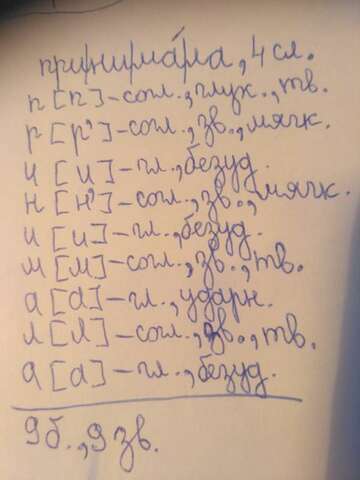 принима́ла, 4 сл.
п [п] – согл., глух., тв.
р [р'] – согл., зв., мягк.
и [и] – гл., безуд.
н [н'] – согл., зв., мягк.
и [и] – гл., безуд.
м [м] – согл., зв., тв.
а [а] – гл., ударн.
л [л] – согл., зв., тв.
а [а] – гл., безуд.
9 б., 9 зв.